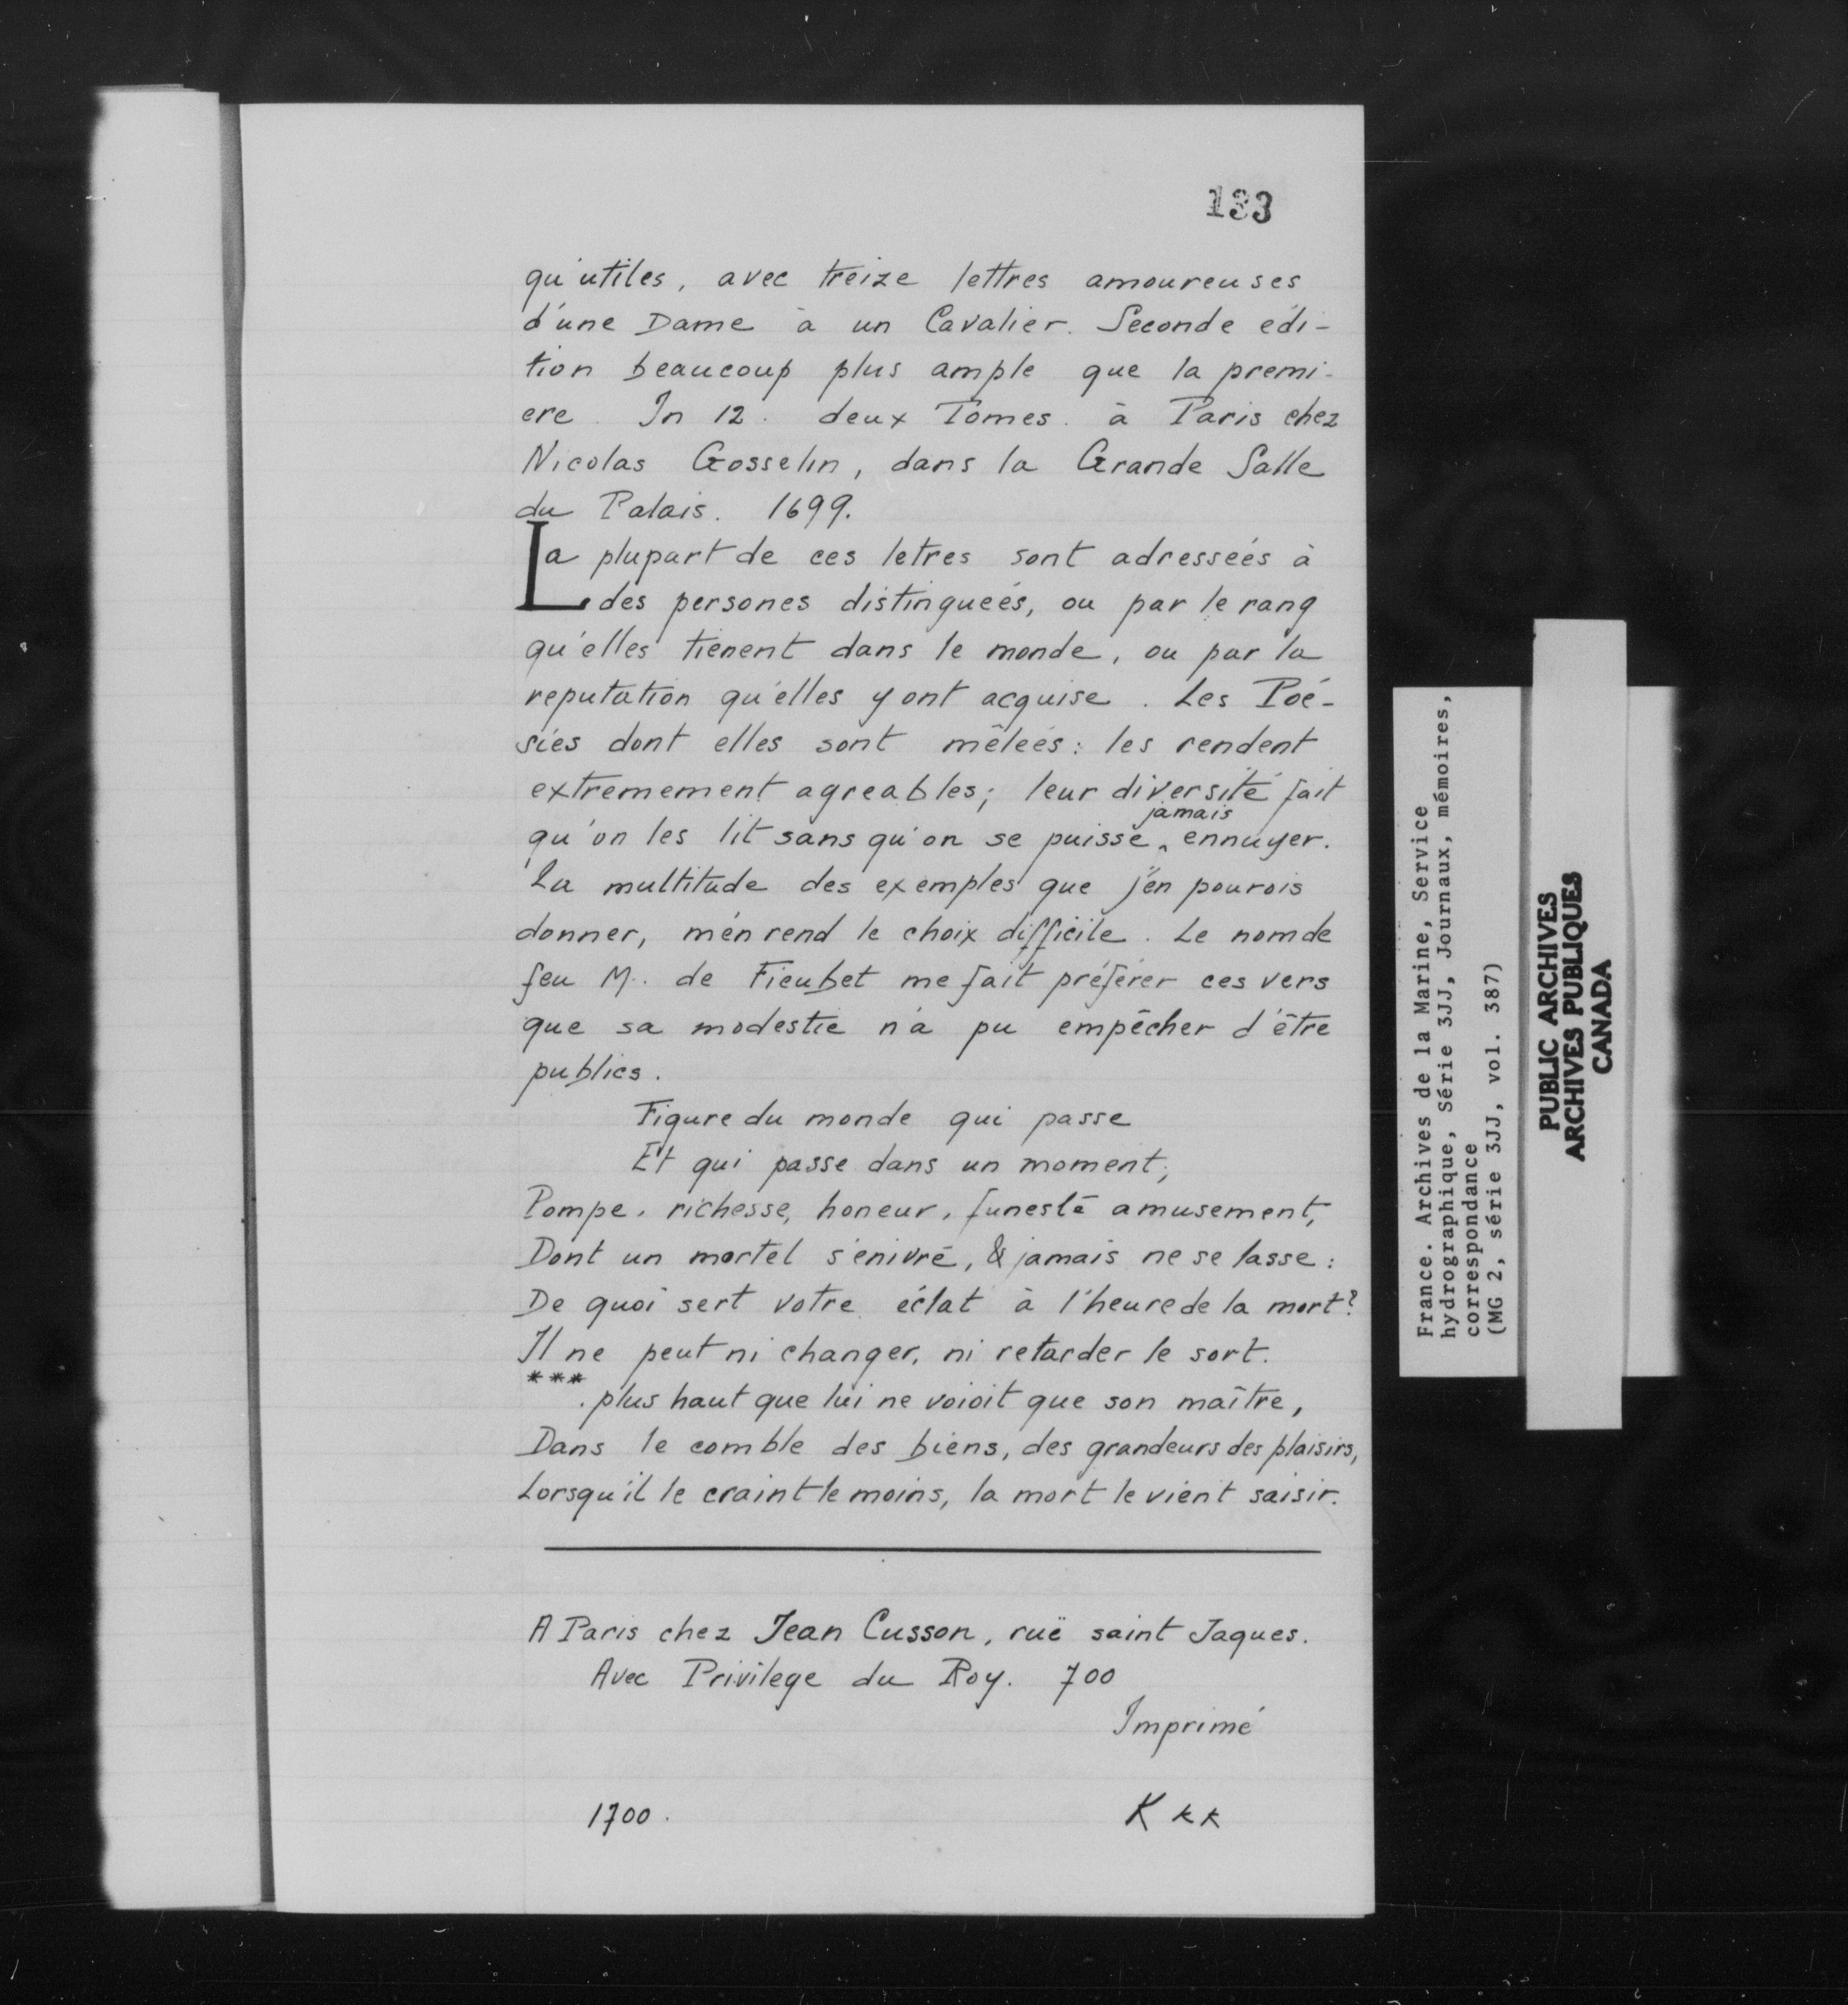 133
qu'utiles, avec treize lettres amoureuses
d'une Dame à un Cavalier. Seconde édi-
tion beaucoup plus ample que la premi-
ere. In 12. deux Tomes. à Paris chez
Nicolas Gosselin, dans la Grande Salle
du Palais. 1699.
La plupart de ces letres sont adresseés à
des persones distingueés, ou par le rang
qu'elles tienent dans le monde, ou par la
reputation qu'elles y ont acquise. Les Poé-
sies dont elles sont mêleés: les rendent
extremement agreables; leur diversité fait
qu'on les lit sans qu'on se puisse jamais ennuyer.
La multitude des exemples que j'en pourois
donner, m'en rend le choix difficile. Le nom de
feu M. de Fieubet me fait préférer ces vers
que sa modestie n'a pu empêcher d'être
publics.
Figure du monde qui passe
Et qui passe dans un moment;
Pompe, richesse, honeur, funeste amusement,
Dont un mortel s'enivre, & jamais ne se lasse:
De quoi sert votre éclat à l'heure de la mort?
Il ne peut ni changer, ni retarder le sort.
*** plus haut que lui ne voioit que son maître,
Dans le comble des biens, des grandeurs des plaisirs,
Lorsqu'il le craint le moins, la mort le vient saisir.
A Paris chez Jean Cusson, ruë saint Jaques.
Avec Privilege du Roy. 700
Imprimé
1700. K k k
France. Archives de la Marine, Service
hydrographique, Série 3JJ, Journaux, mémoires,
correspondance
(MG 2, série 3JJ, vol. 387)
PUBLIC ARCHIVES
ARCHIVES PUBLIQUES
CANADA